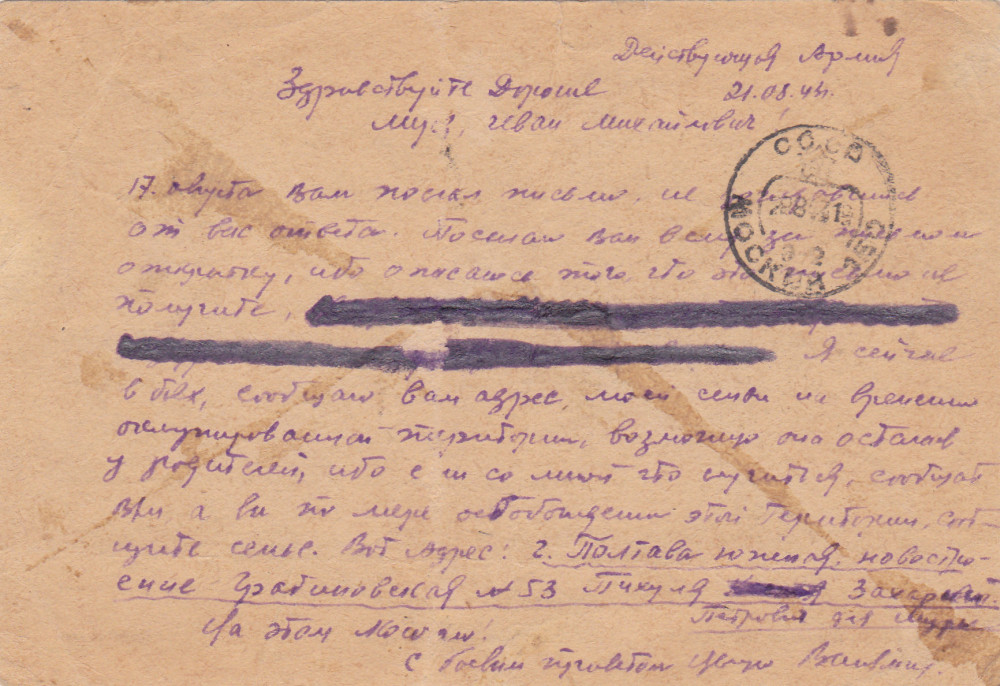 Действующая Армия
Здравствуйте Дорогие 21.08.44.
Иван Михайлович!
17. августа Вам послал письмо, не
от вас ответа. Посылаю Вам вслед за письмом
открытку, ибо опасаюсь того что это письмо не
получите,
Я сейчас
в боях, сообщаю вам адрес моей семьи на временно
оккупированной територии, возможно она осталась
у родителей, ибо если со мной что случится, сообщат
Вам, а вы по мере освобождения этой територии, сооб-
щите семье. Вот Адрес: г. Полтава южная, новостро-
ение Грабиновская № 53 Пикуля Захарий
Петрович для
На этом
С боевым приветом
СССР
МОСКВА